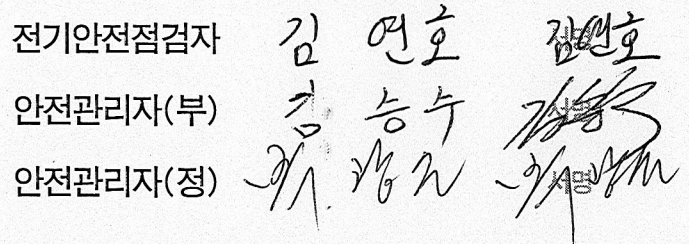 전기안전점검자 김 연호 김연호
안전관리자(부) 김 승수 서명
안전관리자(정) 서명